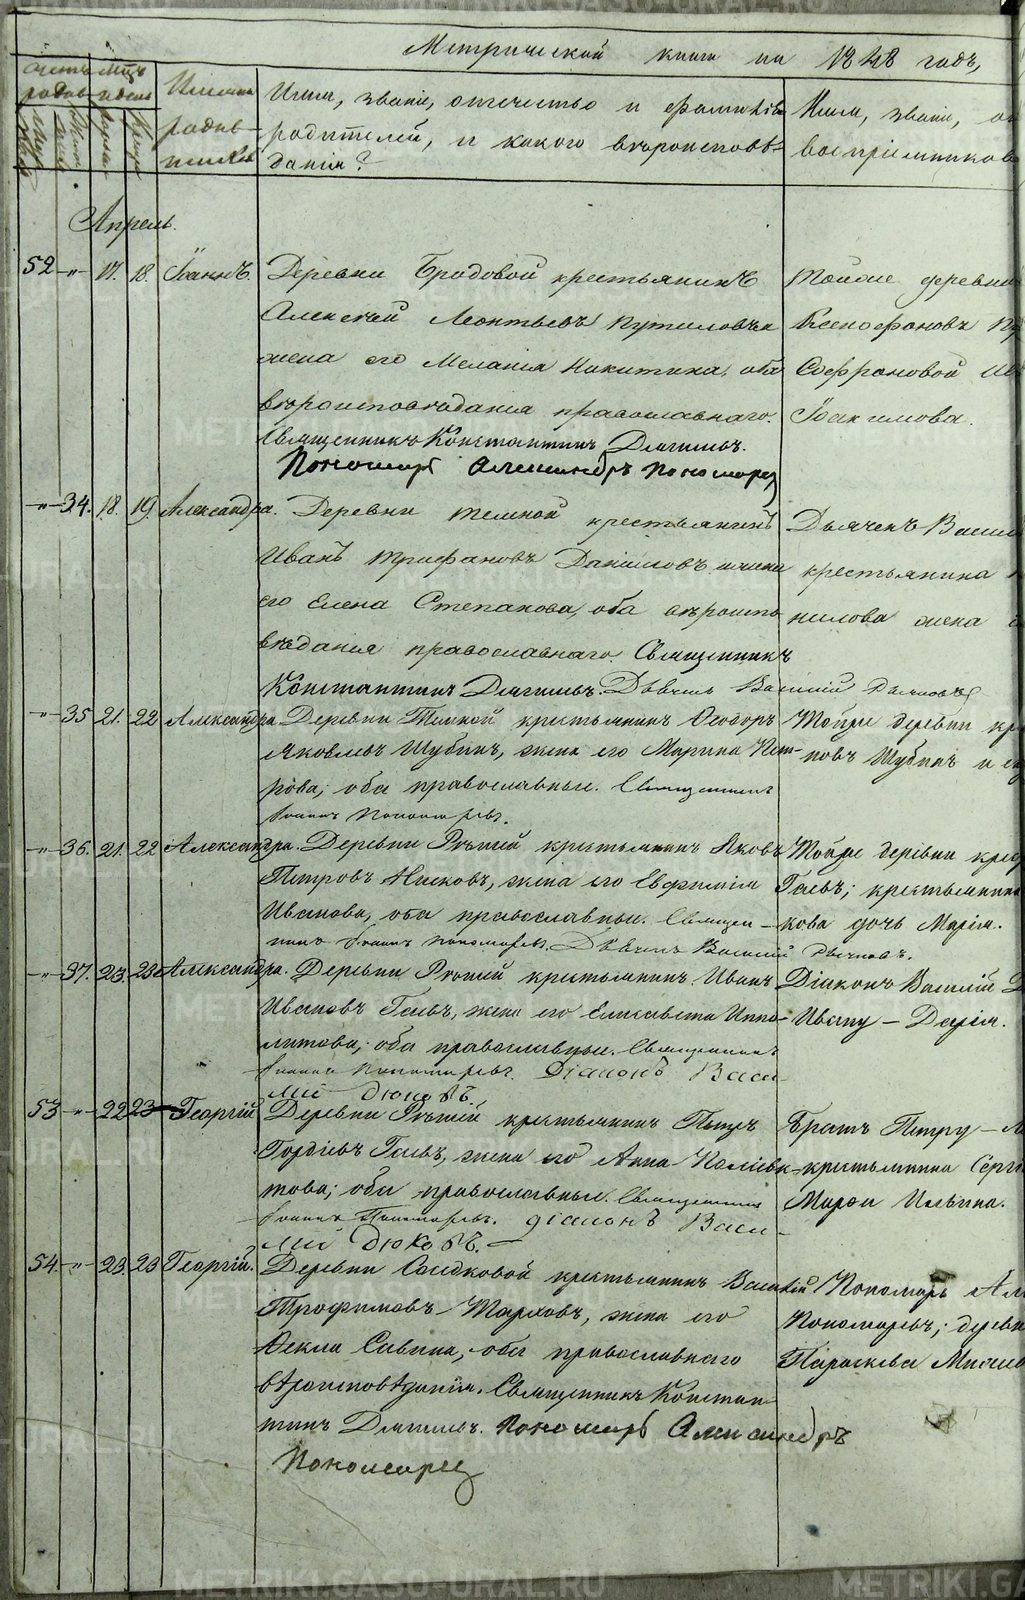 Метрической книги на 1848 годъ,
Счетъ родив Мць и день
Имена родив- шихся
Имя, званіе, отчество и фамилія
родителей, и какого вѣроисповѣ-
данія?
Имя, званіе, от
воспріемниковъ
Апрель.
52 -"- 17. 18. Іоаннъ. Деревни Бродовой крестьянинъ
Алексей Леонтьевъ Путиловъ и
жена его Меланія Никитина, оба
вѣроисповѣданія православнаго.
Священникъ Константинъ Дягилевъ.
Пономарь Александръ Пономарев
Тойже деревни
Ксенофоновъ Пу
Софроновой
Іоакимова.
-"- 34. 18. 19. Александра. Деревни Темной крестьянинъ
Иванъ Трифановъ Даниловъ и жена
его Елена Степанова, оба вѣроиспо
вѣданія православнаго. Священникъ
Константинъ Дягилевъ. Дьячекъ Василій Дьячковъ
Дьячекъ Васил
крестьянина
нилова жена
-"- 35 21. 22 Александра. Деревни Темной крестьянинъ Ѳеодоръ
Яковлевъ Шубинъ, жена его Марина Пет-
рова; оба православные. Священникъ
Іоаннъ Пономаревъ.
Тойже деревни кре
новъ Шубинъ и
-"- 36. 21. 22 Александра. Деревни Рѣпней крестьянинъ Яковъ
Петровъ Носковъ, жена его Евфимія
Иванова, оба православные. Священ-
никъ Іоаннъ Пономаревъ. Дьячекъ Василій Дьячковъ.
Тойже деревни крес
Гаевъ; крестьянина
кова дочь Марія.
-"- 37. 23. 23 Александра. Деревни Рѣпней крестьянинъ Иванъ
Ивановъ Гаевъ, жена его Елисавета Иппо-
литова; оба православные. Священникъ
Іоаннъ Пономаревъ. Діаконъ Васи-
лий Дюковъ.
Діаконъ Василій Д
Ивану - Дарія.
53 -"- 22 23 Георгій Деревни Рѣпней крестьянинъ Петръ
Гордѣевъ Гаевъ, жена его Анна Полиевк-
това; оба православные. Священникъ
Іоаннъ Пономаревъ. діаконъ Васи-
лий Дюковъ.
Братъ Петру -
крестьянина Серг
Марѳа Ильина.
54. -"- 23. 23 Георгій. Деревни Сосѣдковой крестьянинъ Василій
Трофимовъ Тарховъ, жена его
Ѳекла Савина; оба православнаго
вѣроисповѣданія. Священникъ Констан-
тинъ Дягилевъ. Пономарь Александръ
Пономарев
Пономарь Ал
Пономаревъ; деревн
Параскева
METRIKI.GASO-URAL.RU
METRIKI.GASO-URAL.RU